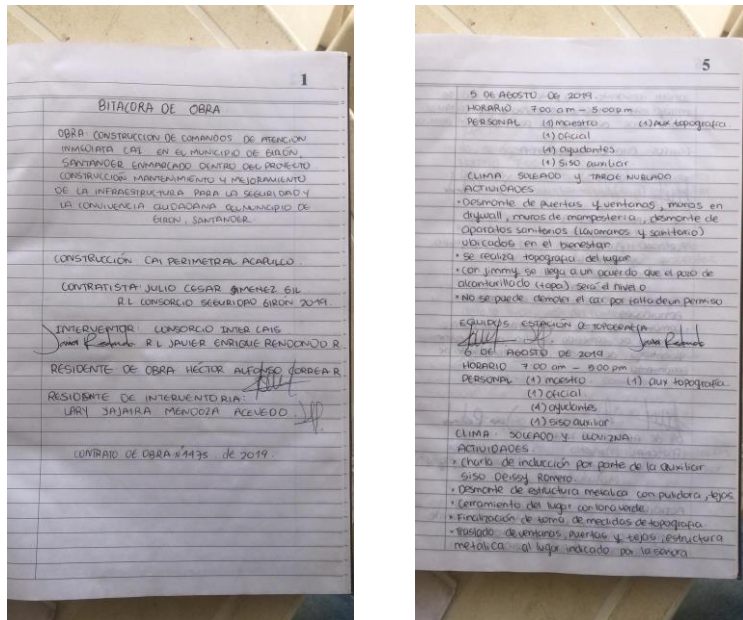 1
BITACORA DE OBRA
OBRA: CONSTRUCCION DE COMANDOS DE ATENCION
INMEDIATA CAI, EN EL MUNICIPIO DE GIRÓN,
SANTANDER ENMARCADO DENTRO DEL PROYECTO
CONSTRUCCIÓN MANTENIMIENTO Y MEJORAMIENTO
DE LA INFRAESTRUCTURA PARA LA SEGURIDAD Y
LA CONVIVENCIA CIUDADANA DEL MUNICIPIO DE
GIRON, SANTANDER.
CONSTRUCCIÓN CAI PERIMETRAL ACAPULCO.
CONTRATISTA: JULIO CESAR JIMENEZ GIL
R.L CONSORCIO SEGURIDAD GIRÓN 2019.
INTERVENTOR: CONSORCIO INTER CAIS
R.L JAVIER ENRIQUE R
RESIDENTE DE OBRA HÉCTOR ALFONSO CORREA R
RESIDENTE DE INTERVENTORIA:
LADY JAJAIRA MENDOZA ACEVEDO.
CONTRATO DE OBRA N°1475 de 2019.
5
5 DE AGOSTO DE 2019.
HORARIO 7:00 am - 5:00pm
PERSONAL (1) maestro (1) Aux topografia.
(1) oficial
(4) ayudantes
(1) siso auxiliar
CLIMA SOLEADO Y TARDE NUBLADO
ACTIVIDADES
• Desmonte de puertas y ventanas, muros en
drywall, muros de mamposteria, desmonte de
aparatos sanitarios (Lavamanos y sanitario)
ubicados en el bienestar.
• se realiza topografia del lugar
• con jimmy se llega a un acuerdo que el pozo de
alcantarillado (tapa) será el nivel 0
• No se puede demoler el cai por falta de un permiso
EQUIPOS: ESTACIÓN DE TOPOGRAFIA
6 DE AGOSTO DE 2019
HORARIO 7:00 am - 5:00 pm
PERSONAL (1) maestro (1) aux topografia
(1) oficial
(4) ayudantes
(1) siso auxiliar
CLIMA: SOLEADO Y LLOVIZNA
ACTIVIDADES.
• Charla de inducción por parte de la auxiliar
siso Deissy Romero.
• Desmonte de estructura metalica con pulidora, tejas
• Cerramiento del lugar con lona verde
• Finalización de toma de medidas de topografia
• Traslado de ventanas, puertas y tejas, estructura
metalica al lugar indicado por la señora